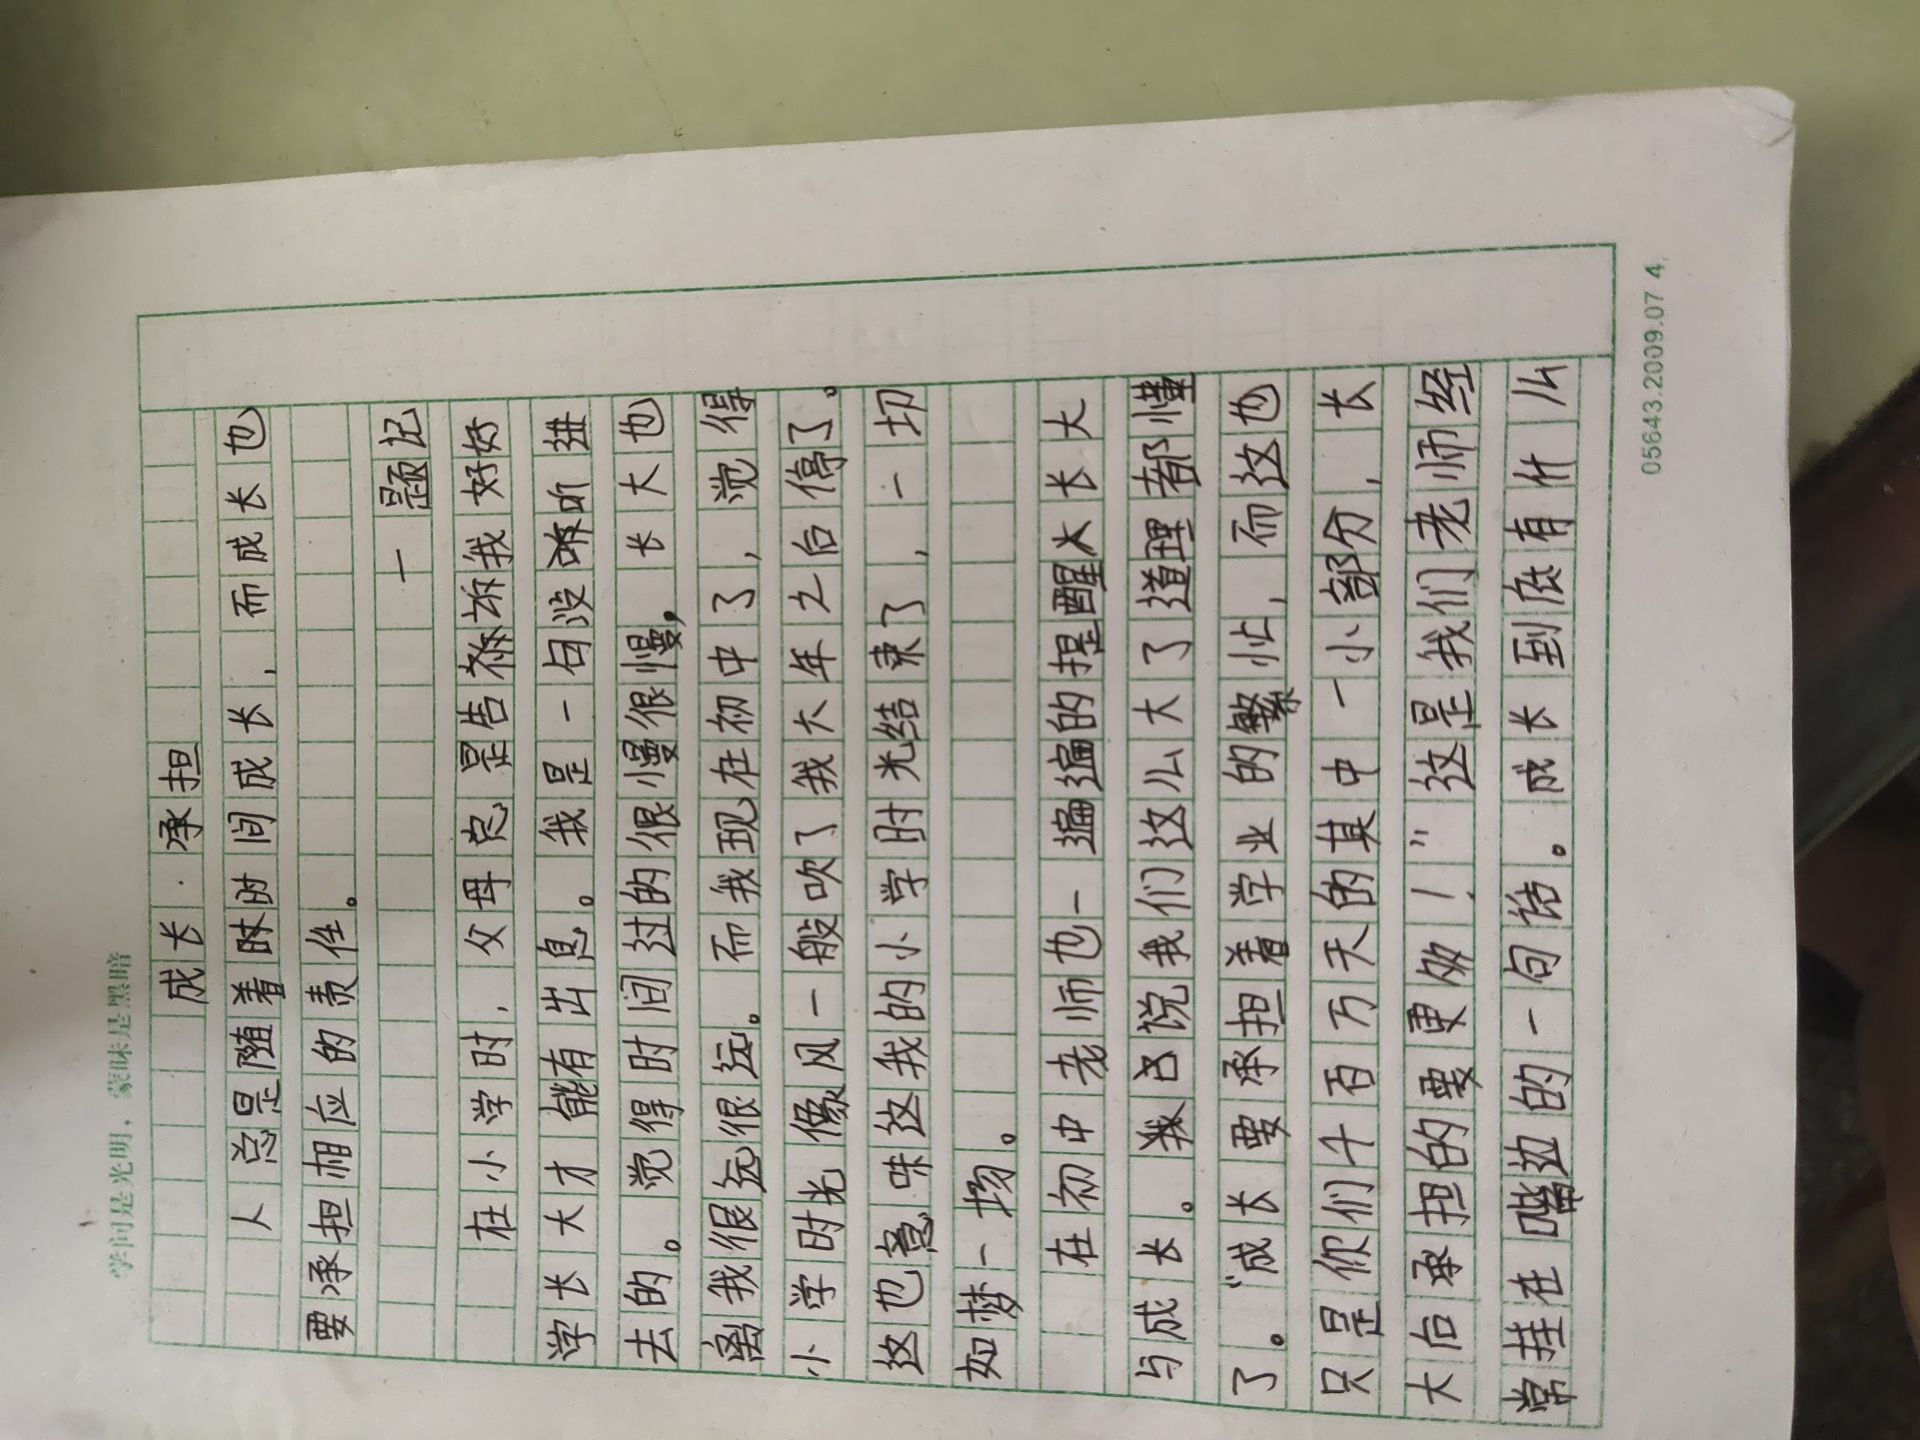 学问是光明，蒙昧是黑暗
成长·承担
人总是随着时间成长，而成长也
要承担相应的责任。
一题记
在小学时，父母总是告诉我好好
学长大才能有出息。我是一句没听进
去的。觉得时间过的很慢很慢，长大也
离我很远很远。而我现在初中了，觉得
小学时光像风一般吹了我六年之后停了。
这也意味这我的小学时光结束了，一切
如梦一场。
在初中老师也一遍遍的提醒火长大
与成长。我已说我们这么大了道理都懂
了。“成长要承担着学业的繁忙，而这也
只是你们千百万天的其中一小部分，长
大后承担的要更多！”这是我们老师经
常挂在嘴边的一句话。成长到底有什么
05643.2009.07 4